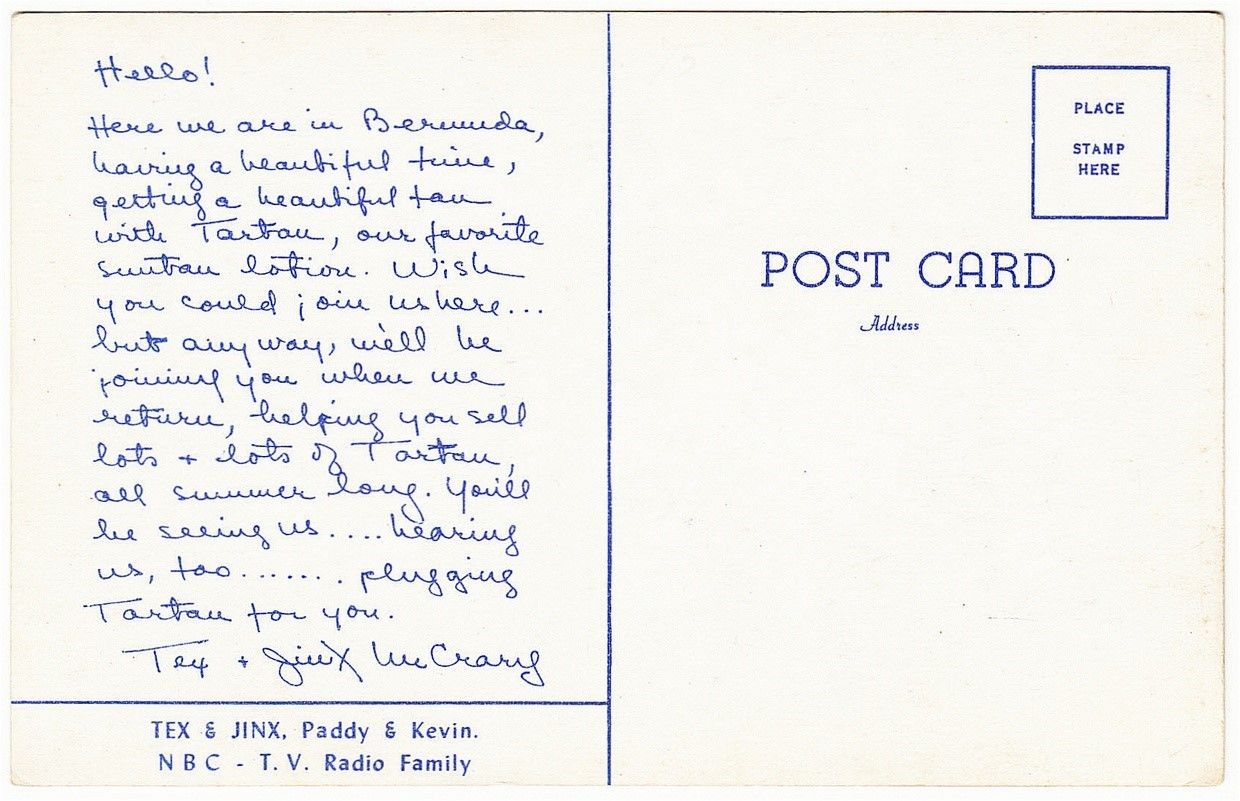 Hello!
Here we are in Bermuda,
having a beautiful time,
getting a beautiful tan
with Tartan, our favorite
suntan lotion. Wish
you could join us here...
but anyway, we'll be
joining you when we
return, helping you sell
lots + lots of Tartan,
all summer long. You'll
be seeing us....hearing
us, too....... plugging
Tartan for you.
Tex + Jinx McCrary
TEX & JINX, Paddy & Kevin.
NBC - T.V. Radio Family
PLACE
STAMP
HERE
POST CARD
Address